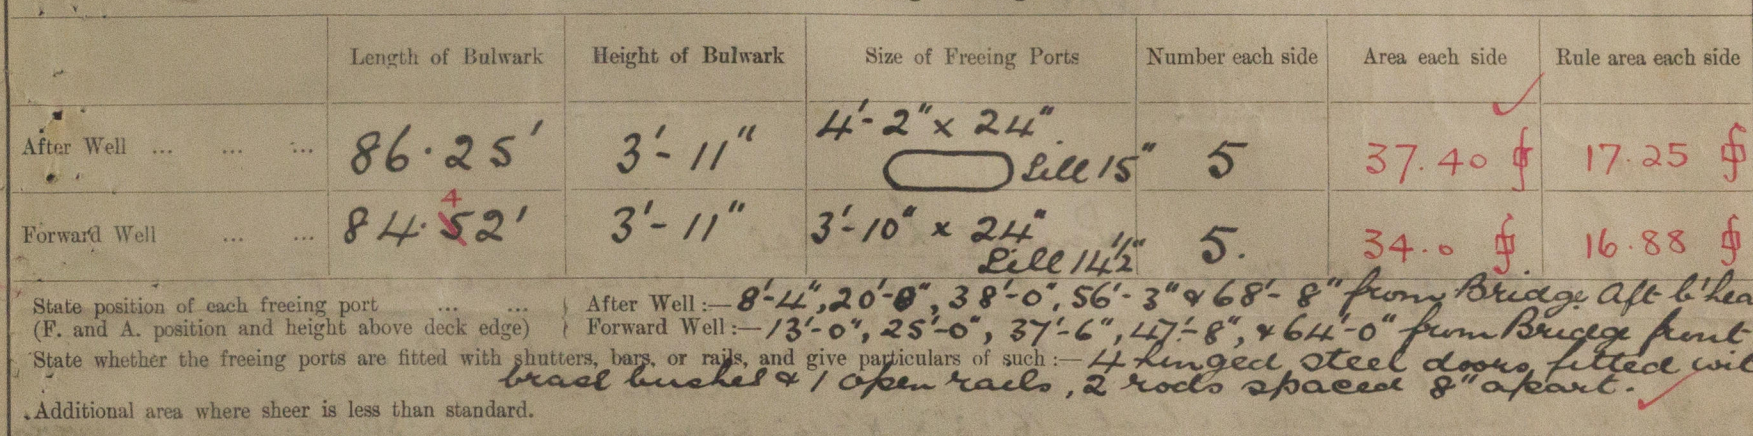 Length of Bulwark Height of Bulwark Size of Freeing Ports Number each side Area each side Rule area each side
After Well ... ... ... 86.25' 3'-11" 4'-2" x 24" Sill 15" 5 37.40 17.25
Forward Well ... ... 84.52' 4 3'-11" 3'-10" x 24" Sill 14½" 5. 34.0 16.88
State position of each freeing port ... ... After Well:— 8'-4", 20'-0", 38'-0", 56'-3" & 68'-8" from Bridge Aft b'hea
(F. and A. position and height above deck edge) Forward Well:— 13'-0", 25'-0", 37'-6", 47'-8", & 64'-0" from Bridge front
State whether the freeing ports are fitted with shutters, bars, or rails, and give particulars of such:— 4 hinged steel doors fitted wit
brass bushes & 1 open rails, 2 rods spaced 8" apart.
Additional area where sheer is less than standard.